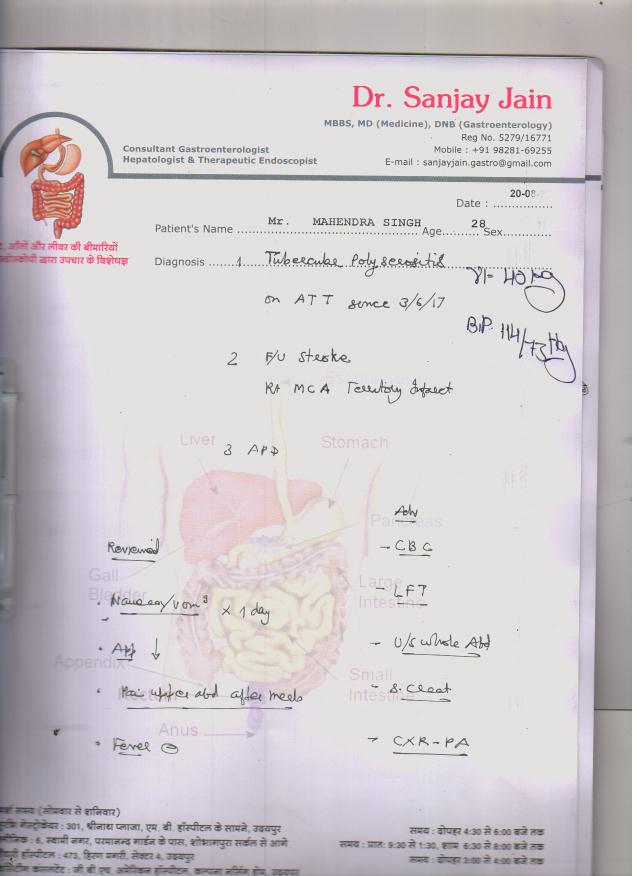 Dr. Sanjay Jain
MBBS, MD (Medicine), DNB (Gastroenterology)
Reg No. 5279/16771
Mobile : +91 98281-69255
E-mail : sanjayjain.gastro@gmail.com
Consultant Gastroenterologist
Hepatologist & Therapeutic Endoscopist
आँतों और लीवर की बीमारियों
द्वारा उपचार के विशेषज्ञ
20-08-
Date : ................
Patient's Name Mr. MAHENDRA SINGH Age 28 Sex
Diagnosis 1 Tubercular Polyserositis
on ATT since 3/6/17
40 kg
B.P. 114/73
2 F/U Stroke
Rt MCA Territory Infarct
3 APD
Liver
Stomach
Pancreas
Gall Bladder
Large Intestine
Appendix
Small Intestine
Anus
Reviewed
• Nausea/vom g x 1 day
• App ↓
• Pain upper abd after meals
• Fever ⊖
Adv
- CBC
- LFT
- U/S whole Abd
- S. Creat
- CXR-PA
समय (सोमवार से शनिवार)
: 301, श्रीनाथ प्लाजा, एम. बी. हॉस्पीटल के सामने, उदयपुर
: 6, स्वामी नगर, परमानन्द गार्डन के पास, शोभागपुरा सर्कल से आगे
हॉस्पीटल : 473, हिरण मगरी, सेक्टर 4, उदयपुर
समय : दोपहर 4:30 से 6:00 बजे तक
समय : प्रातः 9:30 से 1:30, शाम 6:30 से 8:00 बजे तक
समय : दोपहर 3:00 से 4:00 बजे तक